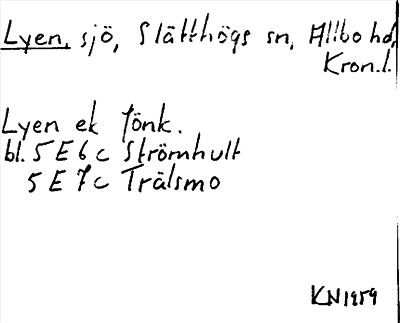 Lyen, sjö, Slätthögs sn, Allbo hd,
Kron.l.
Lyen ek Jönk.
bl. 5 E 6 c Strömhult
5 E 7 c Trälsmo
KN 1959